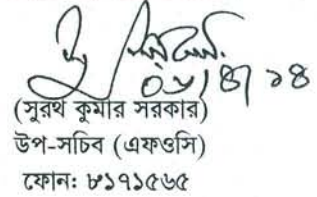 (সুরথ কুমার সরকার)
উপ-সচিব (এফওসি)
ফোন: ৮১৭১৫৬৫